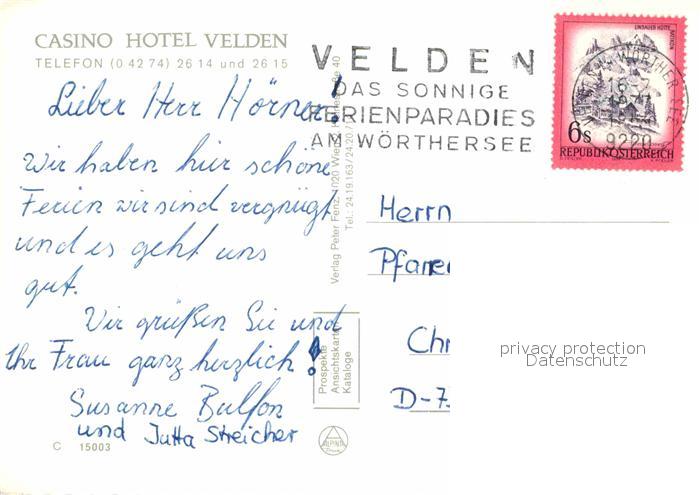 CASINO HOTEL VELDEN
TELEFON (0 42 74) 26 14 und 26 15
VELDEN
DAS SONNIGE
FERIENPARADIES
AM WÖRTHERSEE
LINDAUER HÜTTE
RÄTIKON
6s
REPUBLIK ÖSTERREICH
WÖRTHER SEE
9220
Lieber Herr Hörner!
Wir haben hier schöne
Ferien wir sind vergnügt
und es geht uns
gut.
Wir grüßen Sie und
Ihr Frau ganz herzlich!
Susanne
und Jutta Streicher
C 15003
Verlag Peter Fenz, 1020 Wien
Tel. 24.19.163/24.20
Prospekte
Ansichtskarten
Kataloge
ALPINA
Herrn
Pfarrer
Chr
D-7
privacy protection
Datenschutz